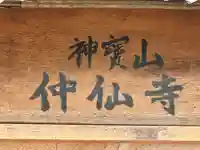 神寳山
仲仙寺